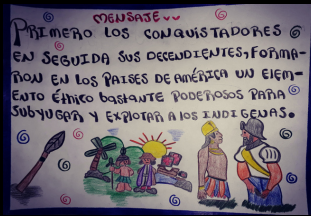 MENSAJE
PRIMERO LOS CONQUISTADORES
EN SEGUIDA SUS DECENDIENTES, FORMA-
RON EN LOS PAISES DE AMÉRICA UN ELEM-
ENTO Étnico bastante PODEROSOS PARA
SUBYUGAR Y EXPLOTAR A LOS INDIGENAS.